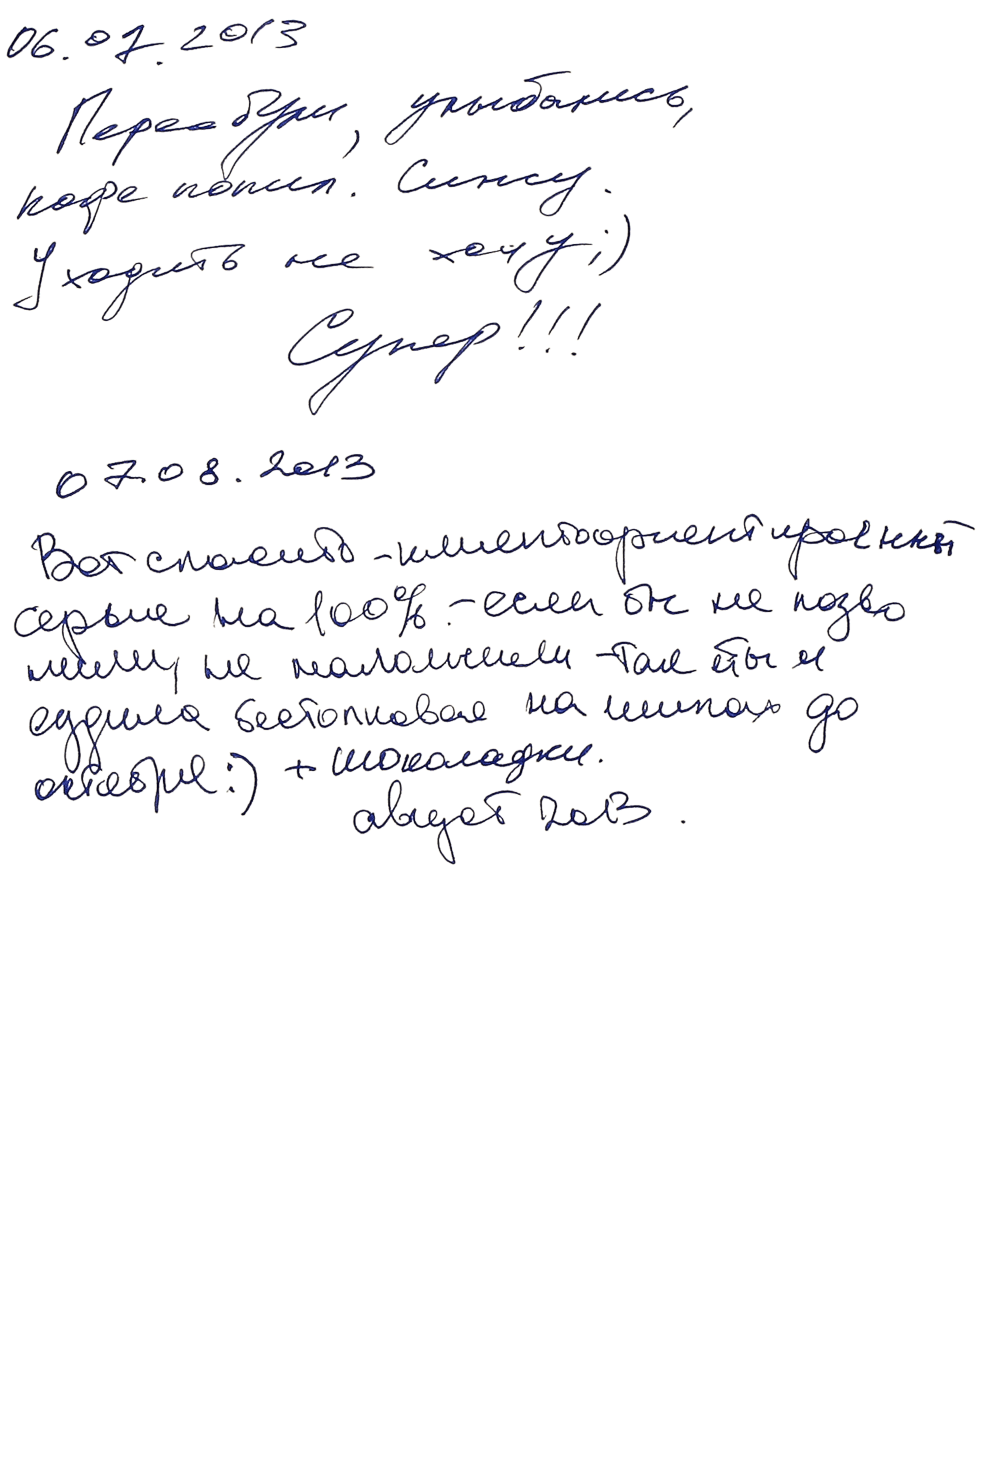 06.07.2013
Переобули, улыбались,
кофе попил. Сижу.
Уходить не хочу ;)
Супер!!!
07.08.2013
Вот спасибо - клиентоориентированный
сервис на 100% - если бы не позво
нили, не напомнили - так бы и
ездила бестолковая на шипах до
октября :) + шоколадки.
август 2013.